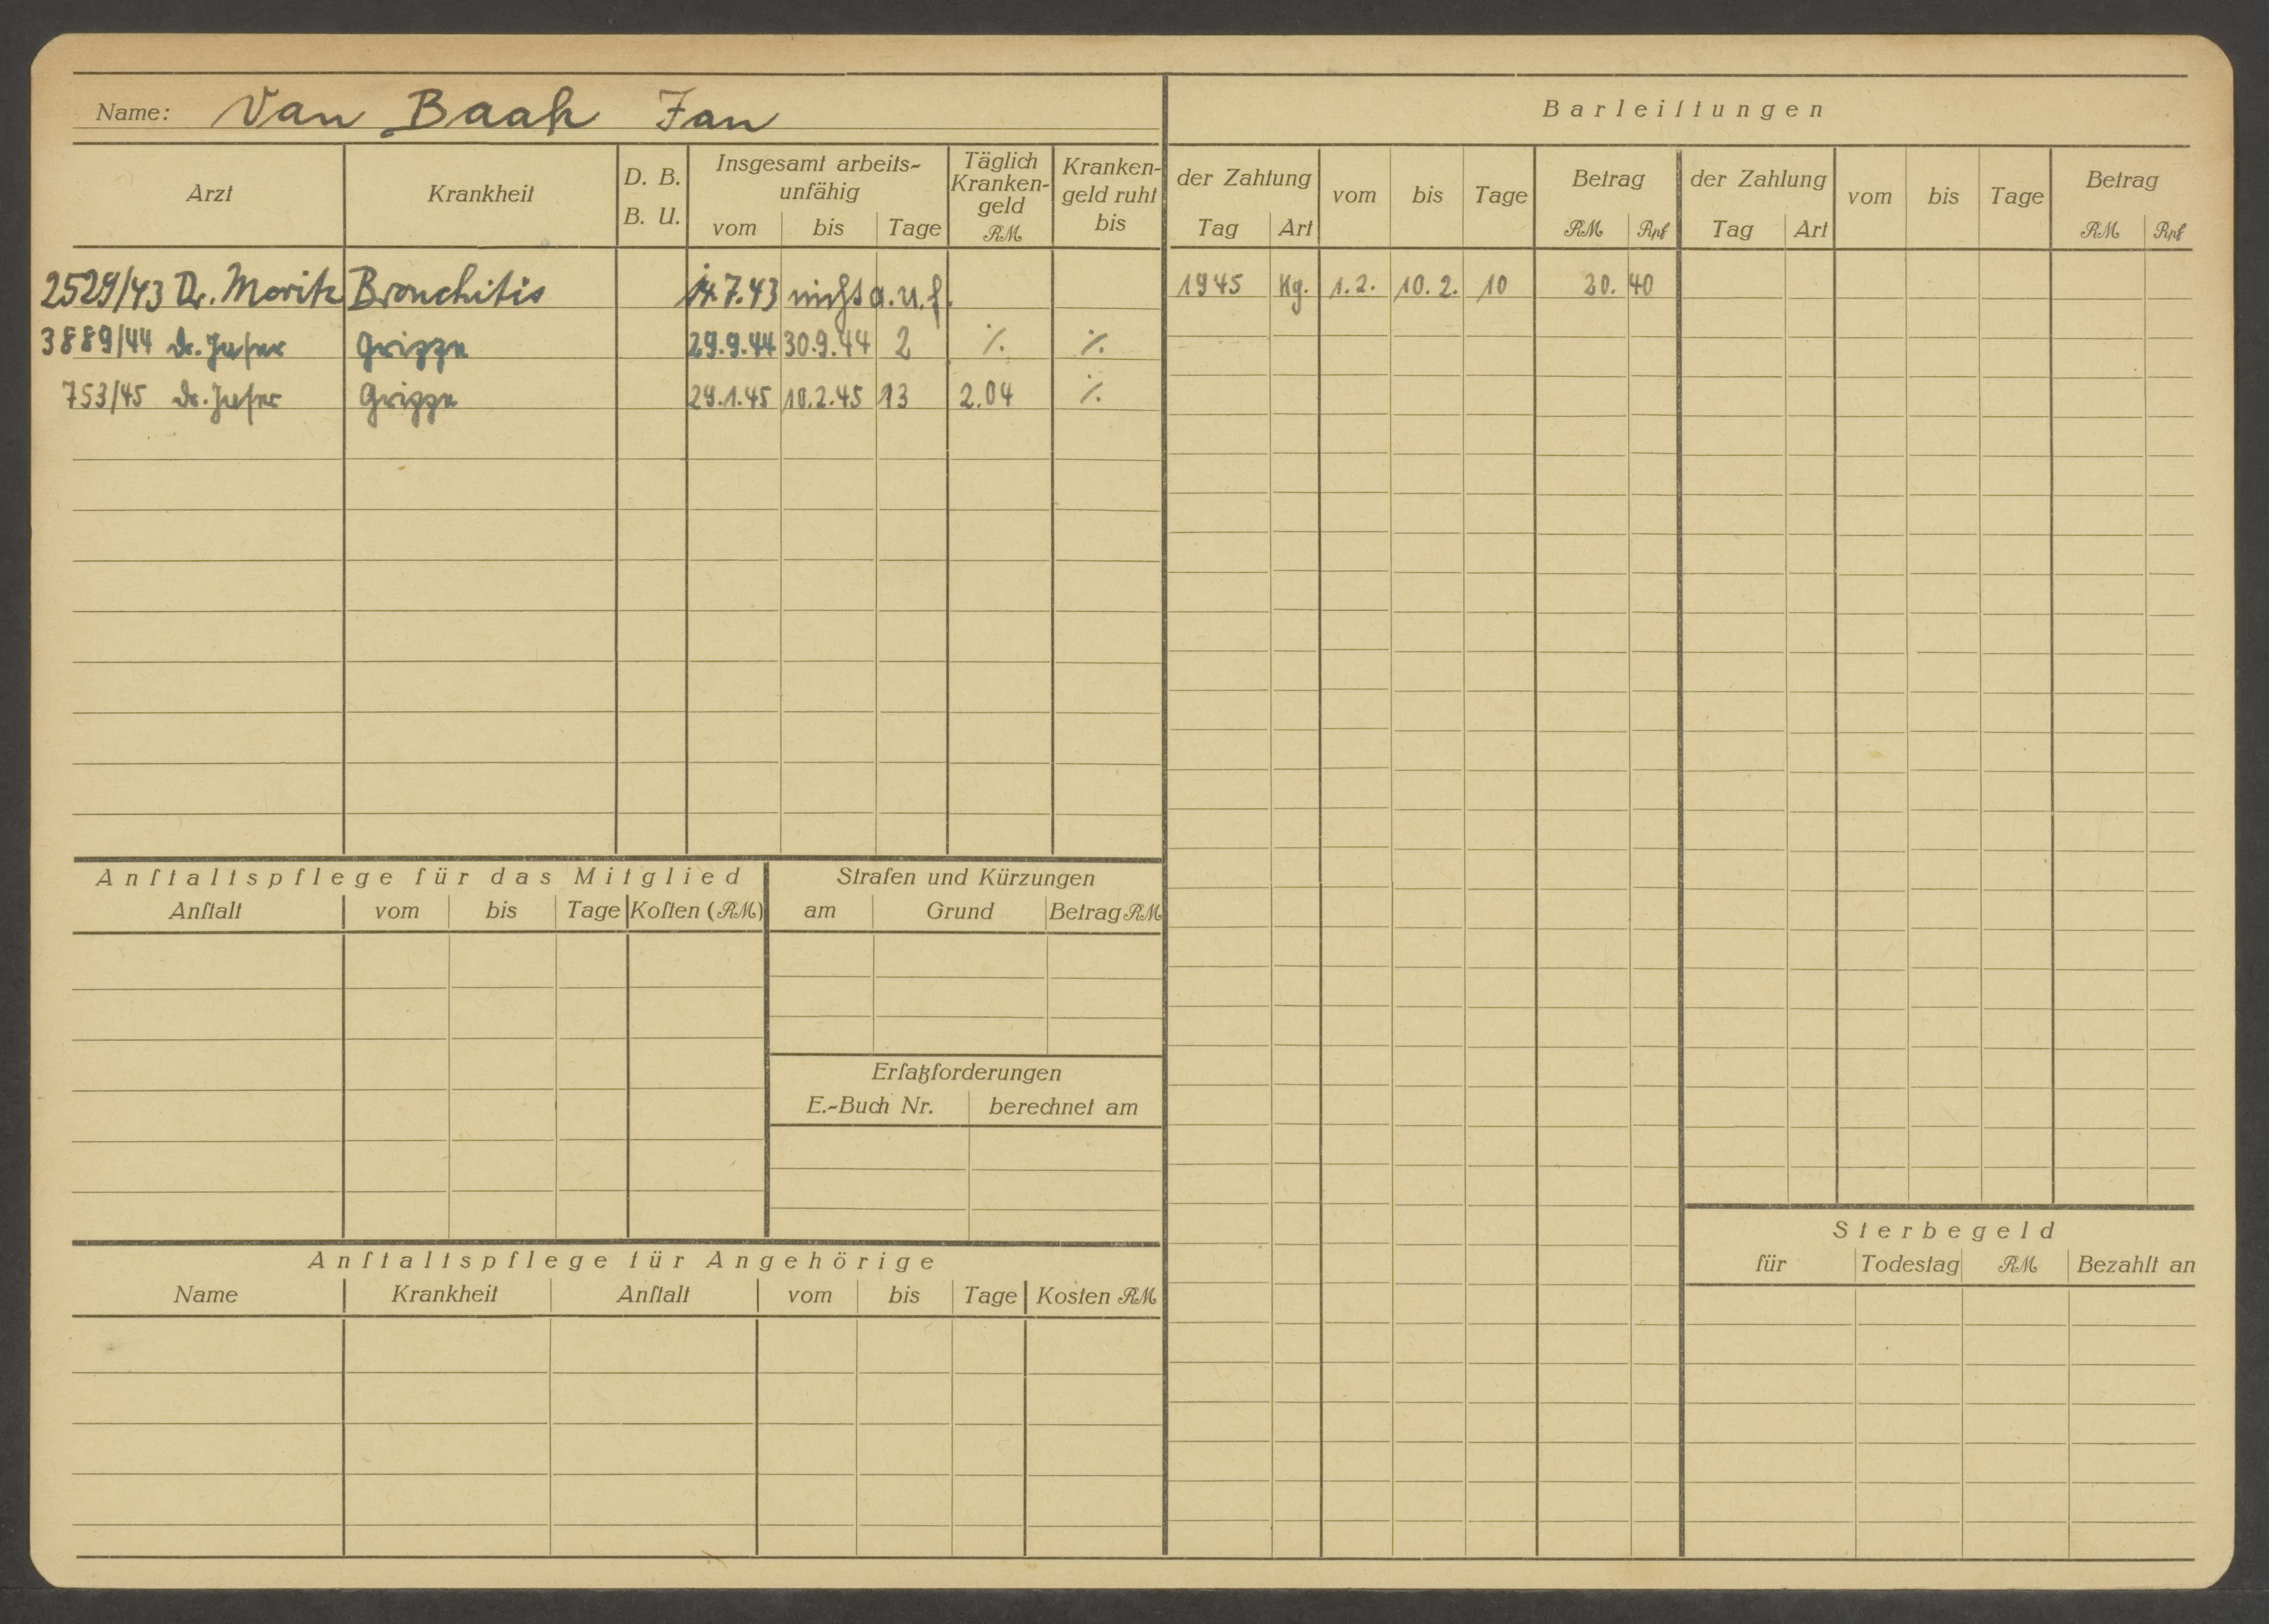 Name: Van Baak Jan
Barleiſtungen
Arzt Krankheit D. B. B. U. Insgesamt arbeits-unfähig vom bis Tage Täglich Kranken-geld RM Kranken-geld ruht bis
der Zahlung Tag Art vom bis Tage Betrag RM Rpf der Zahlung Tag Art vom bis Tage Betrag RM Rpf
2529/43 Dr. Moritz Bronchitis 14.7.43 nicht a.u.f. 1945 Kg. 1.2. 10.2. 10 20.40
3889/44 Dr. Grippe 29.9.44 30.9.44 2 ⁒ ⁒
753/45 Dr. Grippe 29.1.45 10.2.45 13 2.04 ⁒
Anſtaltspflege für das Mitglied
Anſtalt vom bis Tage Koſten (RM)
Strafen und Kürzungen
am Grund Betrag RM
Erſatzforderungen
E.-Buch Nr. berechnet am
Anſtaltspflege für Angehörige
Name Krankheit Anſtalt vom bis Tage Kosten RM
Sterbegeld
für Todestag RM Bezahlt an